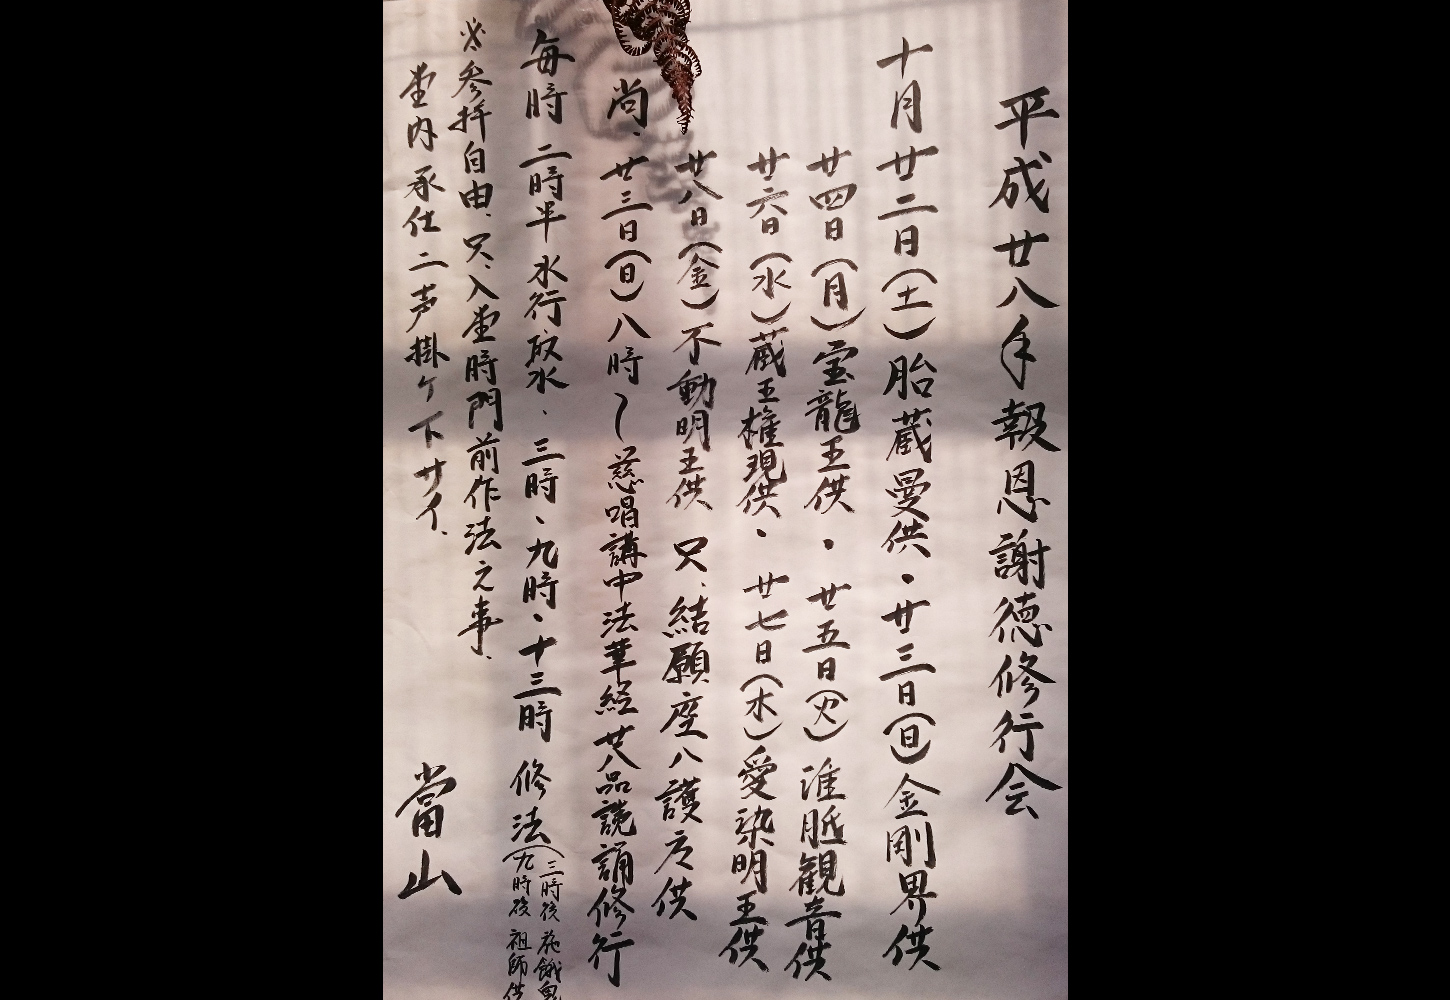 平成廿八年報恩謝徳修行会
十月廿二日(土)胎蔵曼供・廿三日(日)金剛界供
廿四日(月)宝龍王供・廿五日(火)准胝観音供
廿六日(水)蔵王権現供・廿七日(木)愛染明王供
廿八日(金)不動明王供 只、結願座八護方供
尚、廿三日(日)八時〜慈唱講中法華経廿八品読誦修行
毎時 二時半水行取水、三時、九時、十三時 修法(三時後 施餓鬼
九時後 祖師供
※参拝自由、只、入堂時門前作法之事、
堂内承仕ニ声掛ケ下サイ、
當山